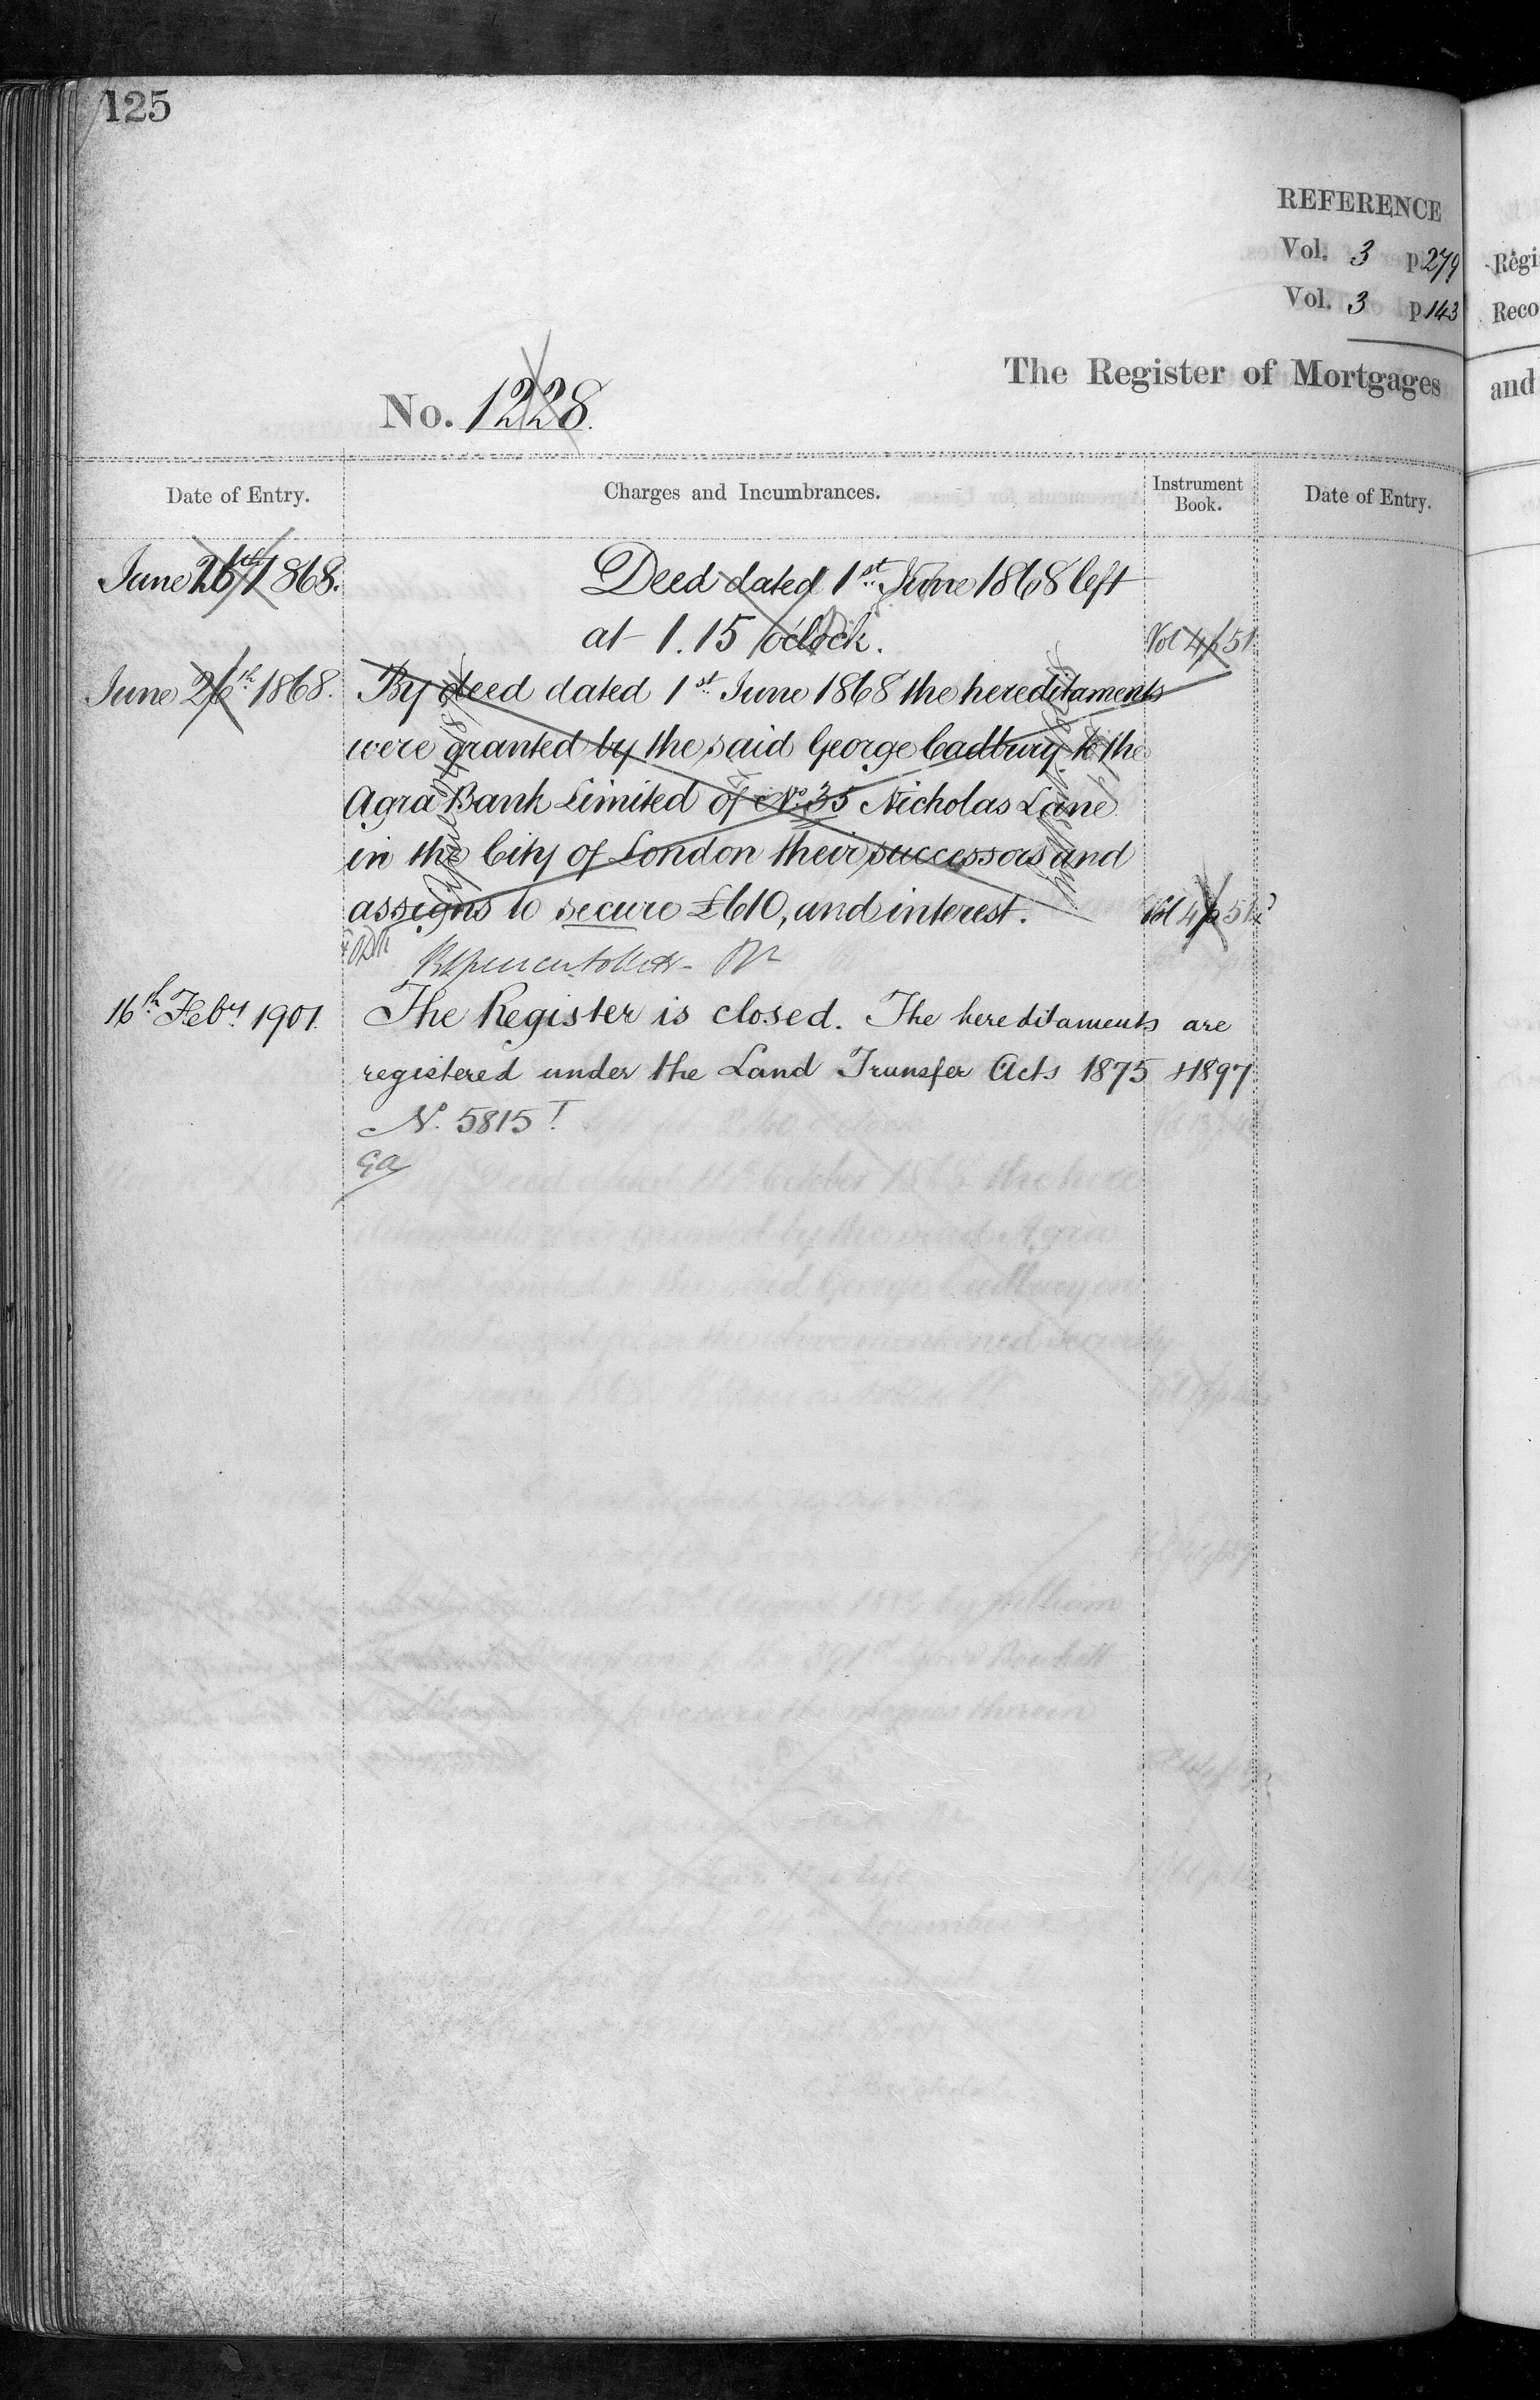 125
REFERENCE
Vol. 3 p. 279
Vol. 3 p. 143
The Register of Mortgages
No. 1228.
Date of Entry.
Charges and Incumbrances.
Instrument Book.
Date of Entry.
June 26th 1868.
Deed dated 1st June 1868 left
at 1.15 o'clock.
Vol 4 p 51
June 26th 1868.
By deed dated 1st June 1868 the hereditaments
were granted by the said George Cadbury to the
Agra Bank Limited of No. 35 Nicholas Lane
in the City of London their successors and
assigns to secure £610, and interest.
Vol 4 p 51
16th Feby. 1901.
The Register is closed. The hereditaments are
registered under the Land Transfer Acts 1875 & 1897
No. 5815 T.
Regi
Reco
and